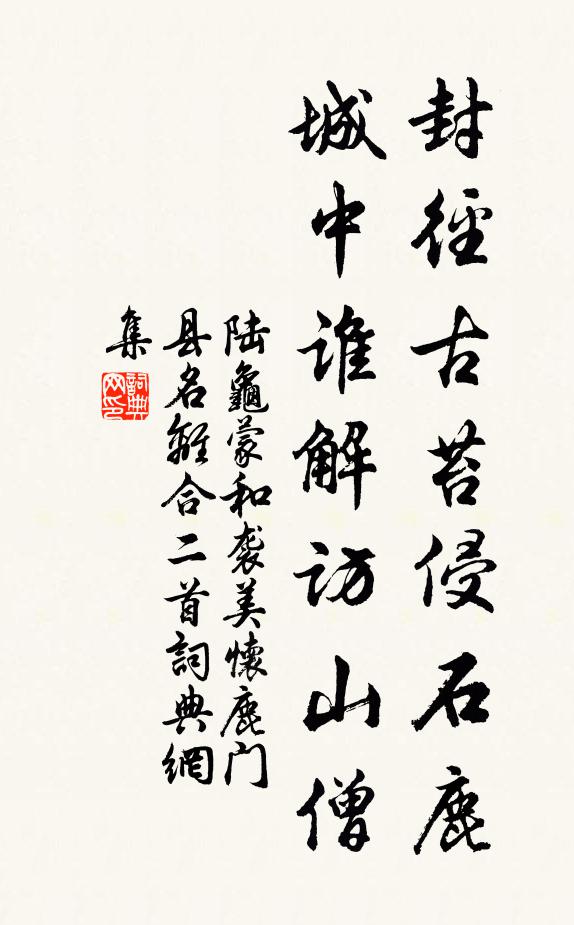 封徑古苔侵石鹿
城中誰解訪山僧
陆龜蒙和袭美懷鹿门
县名離合二首詞典網
集
詞典网印